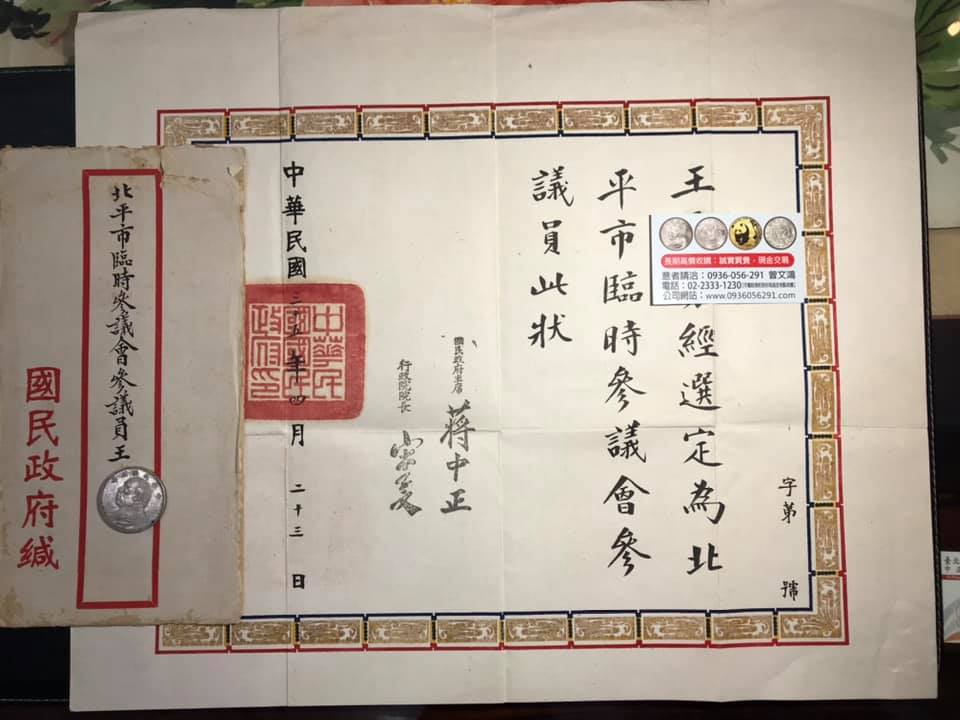 字第 號
王 經選定為北
平市臨時參議會參
議員此狀
國民政府主席 蔣中正
行政院院長
中華民國三十五年四月二十三日
中華民國國民政府印
長期高價收購：誠實買賣・現金交易
意者請洽：0936-056-291 曾文鴻
電話：02-2333-1230
公司網站：www.0936056291.com
北平市臨時參議會參議員王
國民政府緘
臺北